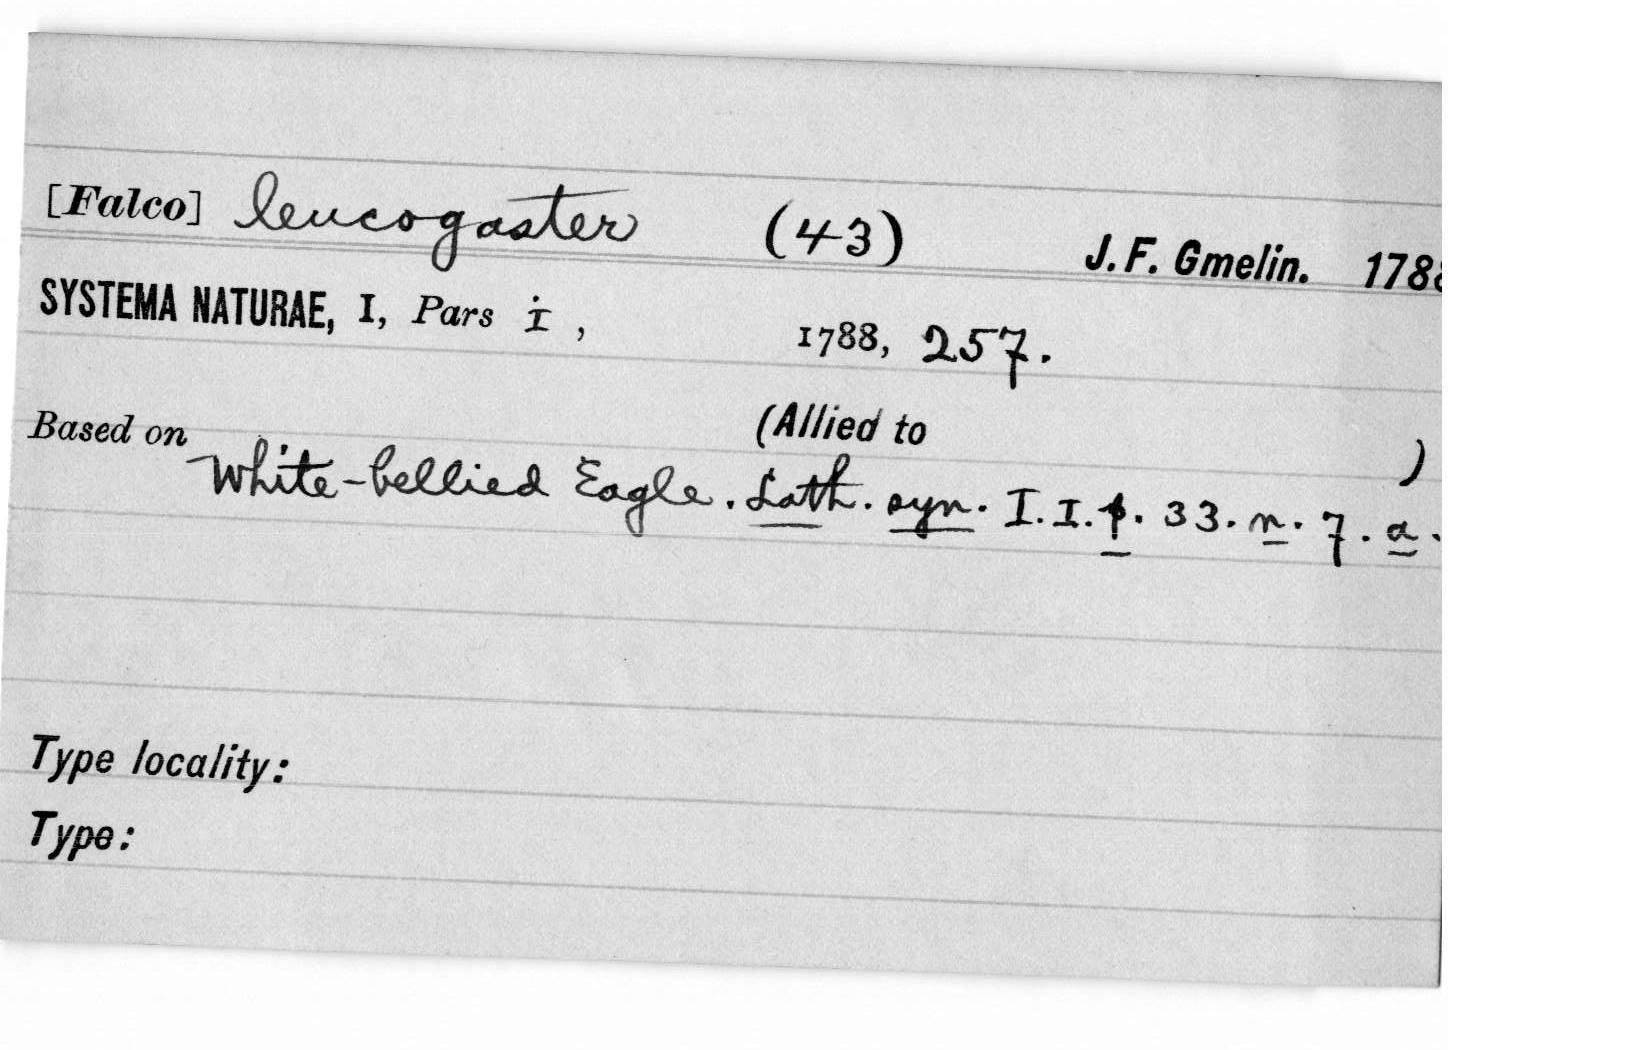 [Falco] leucogaster (43) J. F. Gmelin. 1788
SYSTEMA NATURAE, I, Pars i, 1788, 257.
Based on (Allied to )
White-bellied Eagle. Lath. syn. I. I. p. 33. n. 7. a.
Type locality:
Type: